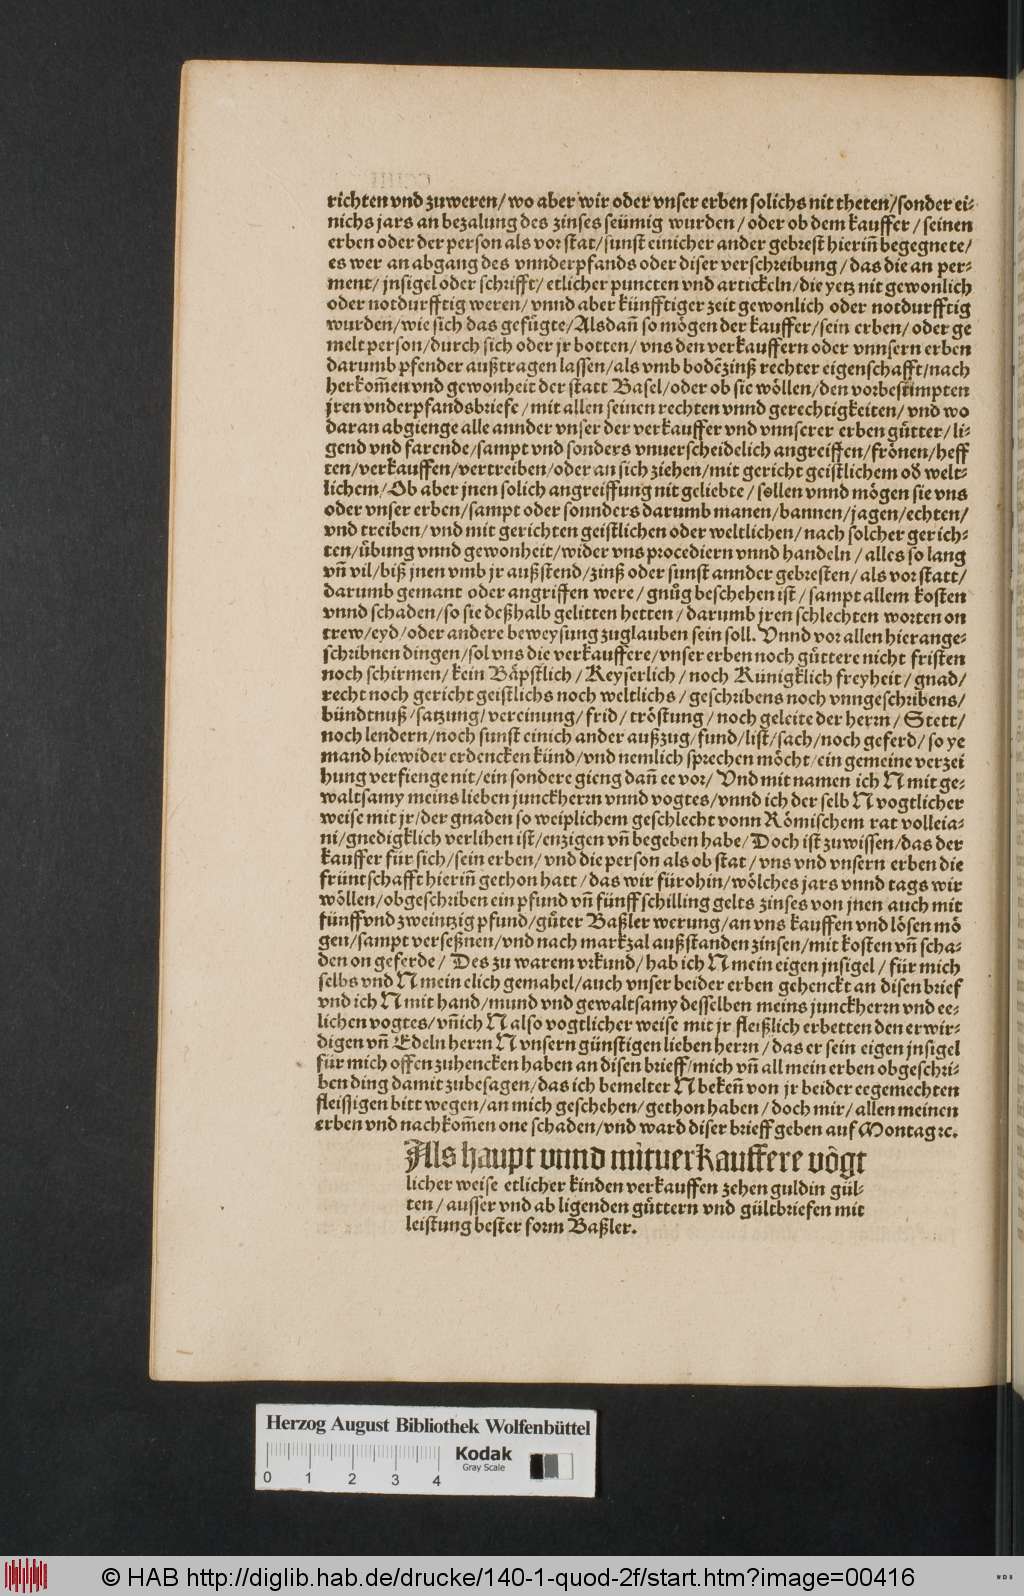 richten vnd zuweren/ wo aber wir oder vnser erben solichs nit theten/ sonder ei⸗
nichs jars an bezalung des zinses seümig wurden / oder ob dem kauffer / seinen
erben oder der person als vor stat/ sunst einicher ander gebrest hieriñ begegnete/
es wer an abgang des vnnderpfands oder diser verschreibung / das die an per⸗
ment/ jnsigel oder schrifft/ etlicher puncten vnd artickeln/ die yetz nit gewonlich
oder notdurfftig weren/ vnnd aber künfftiger zeit gewonlich oder notdurfftig
wurden/ wie sich das gefügte/ Alsdañ so mögen der kauffer/ sein erben/ oder ge
melt person/ durch sich oder jr botten/ vns den verkauffern oder vnnsern erben
darumb pfender außtragen lassen/ als vmb bodēzinß rechter eigenschafft/ nach
herkom̄en vnd gewonheit der statt Basel/ oder ob sie wöllen/ den vorbestimpten
jren vnderpfandsbriefe / mit allen seinen rechten vnnd gerechtigkeiten/ vnd wo
daran abgienge alle annder vnser der verkauffer vnd vnnserer erben gütter/ li⸗
gend vnd farende/ sampt vnd sonders vnuerscheidelich angreiffen/ frönen/ heff
ten/ verkauffen/ vertreiben/ oder an sich ziehen/ mit gericht geistlichem od̕ welt⸗
lichem/ Ob aber jnen solich angreiffung nit geliebte / sollen vnnd mögen sie vns
oder vnser erben/ sampt oder sonnders darumb manen/ bannen/ jagen/ echten/
vnd treiben/ vnd mit gerichten geistlichen oder weltlichen/ nach solcher gerich⸗
ten/ übung vnnd gewonheit/ wider vns procediern vnnd handeln / alles so lang
vñ vil/ biß jnen vmb jr außstend/ zinß oder sunst annder gebresten/ als vor statt/
darumb gemant oder angriffen were/ gnůg beschehen ist / sampt allem kosten
vnnd schaden/ so sie deßhalb gelitten hetten / darumb jren schlechten worten on
trew/ eyd/ oder andere beweysung zuglauben sein soll. Vnnd vor allen hierange⸗
schribnen dingen/ sol vns die verkauffere/ vnser erben noch güttere nicht fristen
noch schirmen/ kein Bäpstlich / Keyserlich / noch Künigklich freyheit/ gnad/
recht noch gericht geistlichs noch weltlichs / geschribens noch vnngeschribens/
bündtnuß/ satzung/ vereinung/ frid/ tröstung / noch geleite der herrn/ Stett/
noch lendern/ noch sunst einich ander außzug/ fund/ list/ sach/ noch geferd/ so ye
mand hiewider erdencken künd/ vnd nemlich sprechen möcht/ ein gemeine verzei
hung verfienge nit/ ein sondere gieng dañ ee vor/ Vnd mit namen ich N mit ge⸗
waltsamy meins lieben junckherrn vnnd vogtes/ vnnd ich der selb N vogtlicher
weise mit jr/ der gnaden so weiplichem geschlecht vonn Römischem rat volleia⸗
ni/ gnedigklich verlihen ist/ enzigen vñ begeben habe/ Doch ist zuwissen/ das der
kauffer für sich/ sein erben/ vnd die person als ob stat / vns vnd vnsern erben die
früntschafft hieriñ gethon hatt / das wir fürohin/ wölches jars vnnd tags wir
wöllen/ obgeschriben ein pfund vñ fünff schilling gelts zinses von jnen auch mit
fünff vnd zweintzig pfund/ gůter Baßler werung/ an vns kauffen vnd lösen mö
gen/ sampt verseßnen/ vnd nach markzal außstanden zinsen/ mit kosten vñ scha⸗
den on geferde / Des zu warem vrkund/ hab ich N mein eigen jnsigel / für mich
selbs vnd N mein elich gemahel/ auch vnser beider erben gehenckt an disen brief
vnd ich N mit hand/ mund vnd gewaltsamy desselben meins junckherrn vnd ee⸗
lichen vogtes/ vñ ich N also vogtlicher weise mit jr fleißlich erbetten den erwir⸗
digen vñ Edeln herrn N vnsern günstigen lieben herrn / das er sein eigen jnsigel
für mich offen zuhencken haben an disen brieff/ mich vñ all mein erben obgeschri⸗
ben ding damit zubesagen/ das ich bemelter N bekeñ von jr beider eegemechten
fleissigen bitt wegen/ an mich geschehen/ gethon haben / doch mir/ allen meinen
erben vnd nachkom̄en one schaden/ vnd ward diser brieff geben auf Montag ꝛc.
Als haupt vnnd mituerkauffere vögt
licher weise etlicher kinden verkauffen zehen guldin gül⸗
ten / ausser vnd ab ligenden güttern vnd gültbriefen mit
leistung bester form Baßler.
Herzog August Bibliothek Wolfenbüttel
Kodak
Gray Scale
0 1 2 3 4
© HAB http://diglib.hab.de/drucke/140-1-quod-2f/start.htm?image=00416